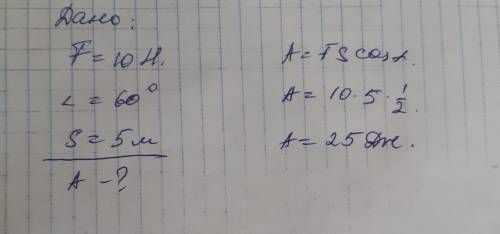 Дано:
F = 10 Н.
∠ = 60°
S = 5 м
A - ?
A = FS cos α.
A = 10 · 5 · 1/2.
A = 25 Дж.